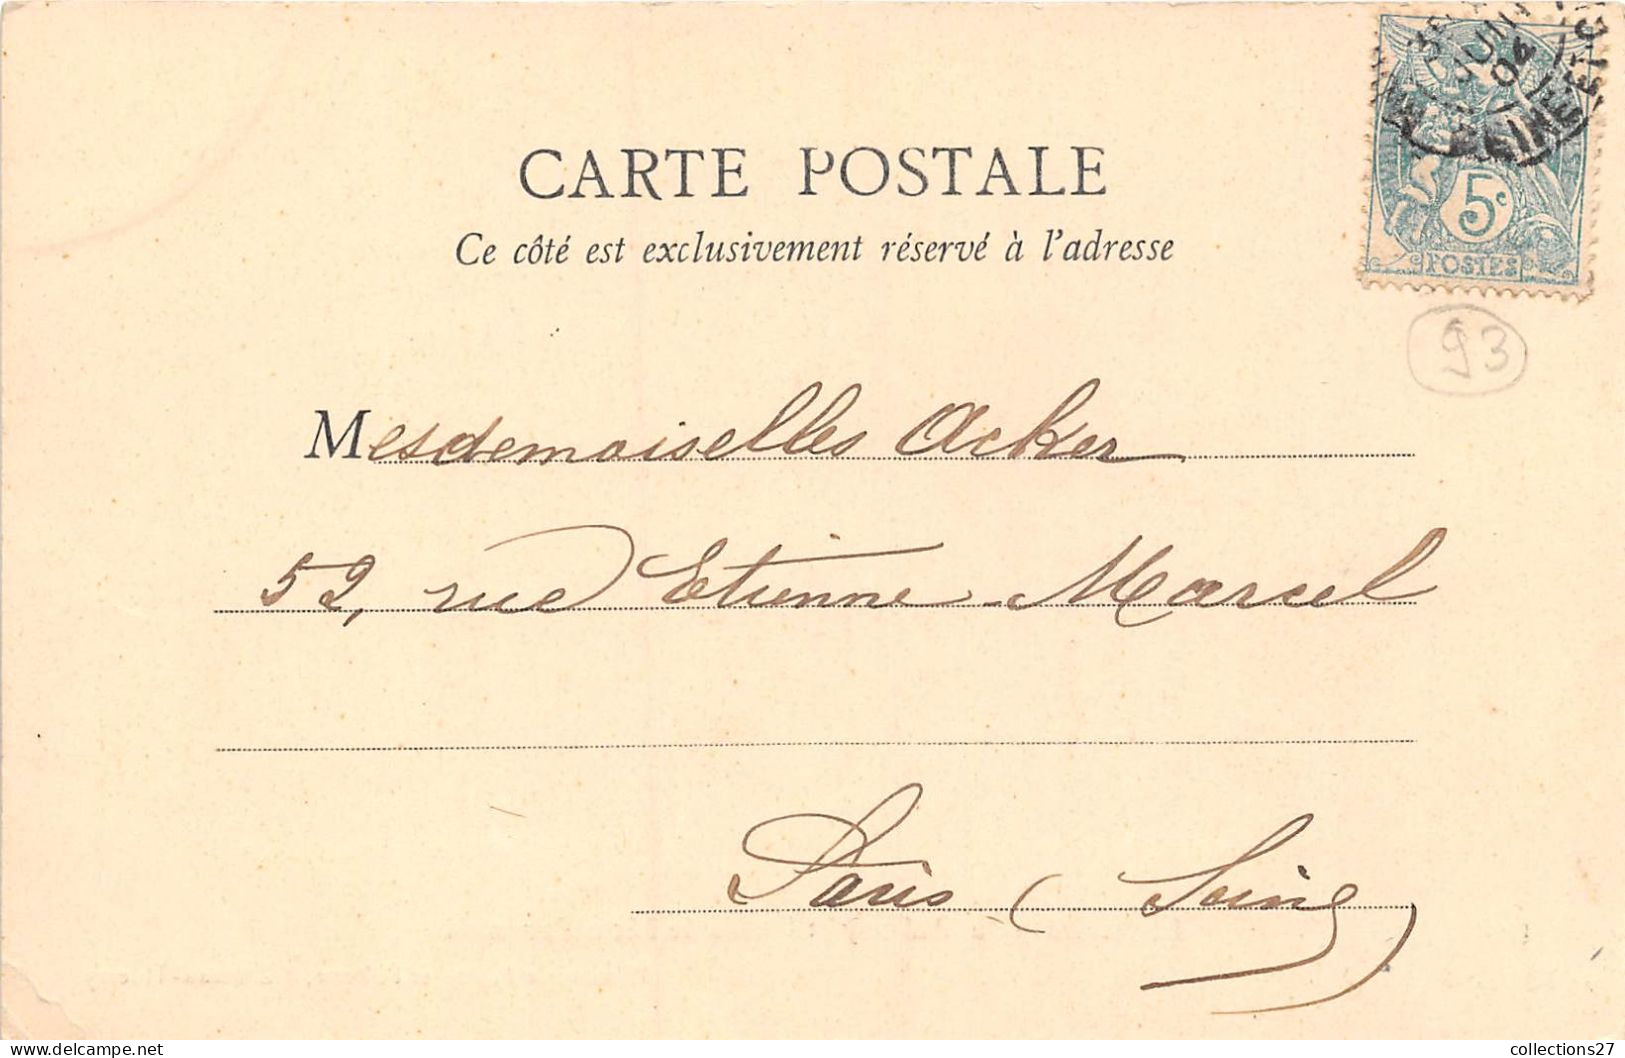 CARTE POSTALE
Ce côté est exclusivement réservé à l'adresse
5c
POSTES
93
Mesdemoiselles Acker
52, rue Etienne Marcel
Paris (Seine)
collections27